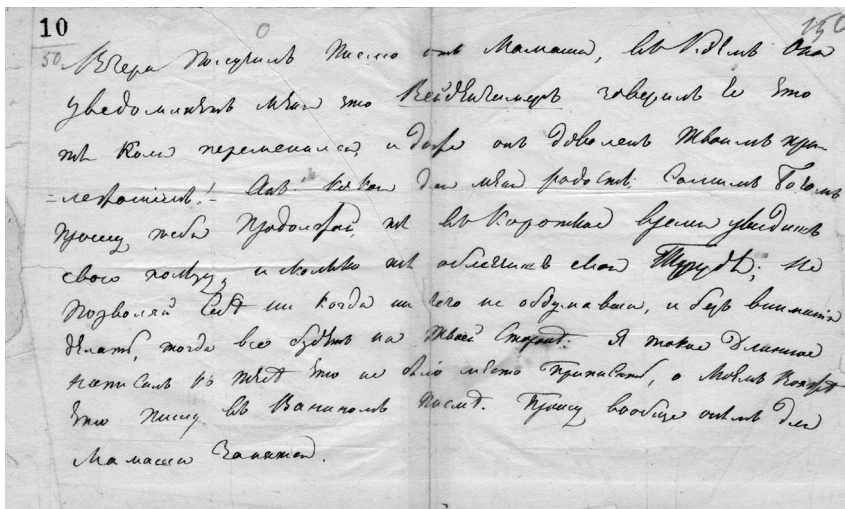 10
150
50 Вчера получилъ письмо отъ Мамаши, въ кѣмъ она
уведомляетъ меня что Вейденгимеръ заверилъ ее что
ты Коля переменился, и даже онъ доволенъ твоимъ при-
=лежаніемъ! Ахъ какая для меня радость; самимъ Богомъ
прошу тебя продолжай, ты въ короткое время увидишь
свою пользу, и сколько ты облегчишь свой Трудъ; не
позволяй себѣ ни когда ни чего не обдумавши, и безъ вниманія
дѣлать, тогда все будетъ на твоей сторонѣ. Я такое длинное
написалъ къ тебѣ что не было место приписать, о моемъ
что пишу въ Ванином письмѣ. Прошу вообще для
Мамаши